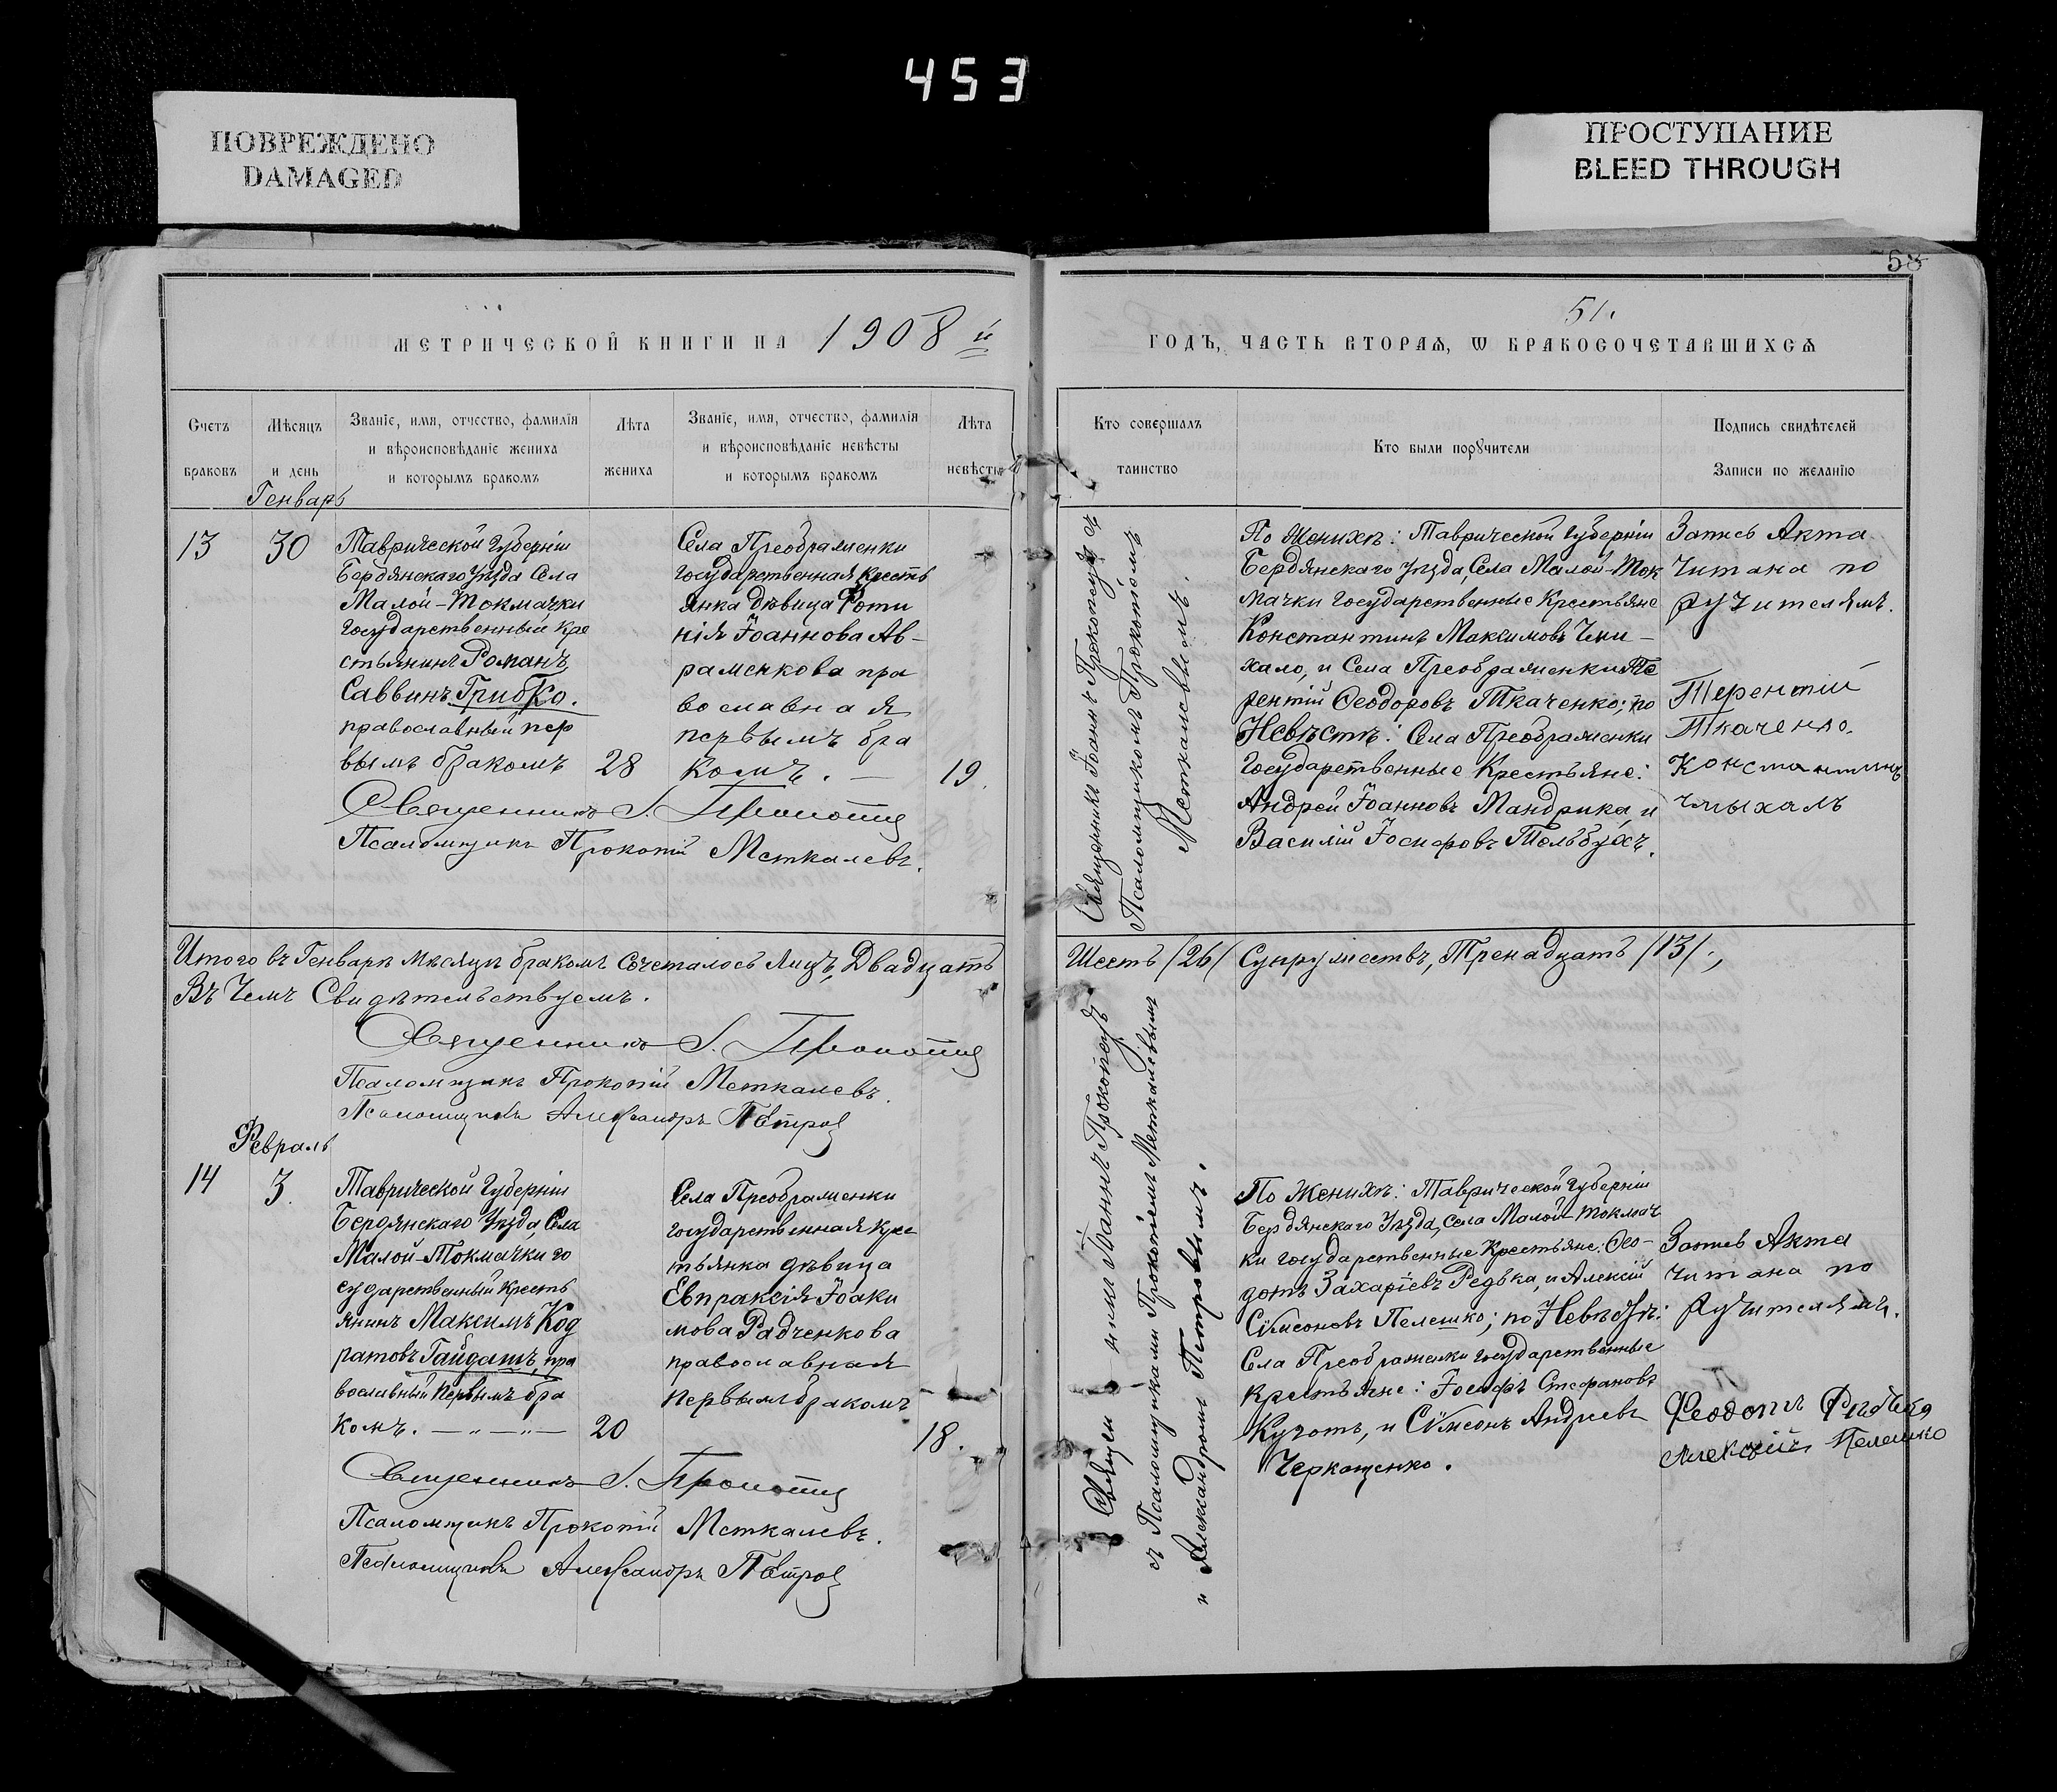 453
ПОВРЕЖДЕНО
DAMAGED
ПРОСТУПАНИЕ
BLEED THROUGH
58
51.
МЕТРИЧЕСКОЙ КНИГИ НА 1908 й
ГОДЪ, ЧАСТЬ ВТОРАѦ, Ѡ БРАКОСОЧЕТАВШИХСѦ
Счетъ
браковъ
Мѣсяцъ
и день
Званіе, имя, отчество, фамилія
и вѣроисповѣданіе жениха
и которымъ бракомъ
Лѣта
жениха
Званіе, имя, отчество, фамилія
и вѣроисповѣданіе невѣсты
и которымъ бракомъ
Лѣта
невѣсты
Кто совершалъ
таинство
Кто были порꙋчители
Подпись свидѣтелей
Записи по желанію
Генварь
13
30
Таврической Губерніи
Бердянскаго Уѣзда Села
Малой-Токмачки
Государственный кре
стьянинъ Романъ
Саввинъ Грибко.
православный пер
вымъ бракомъ
28
Села Преображенки
Государственная кресть
янка дѣвица Фоти
нія Іоаннова Ав-
раменкова пра
вославная
первымъ бра
комъ. —
19.
Священникъ І. Прокопецъ
Псаломщикъ Прокопій Меткалевъ.
Священникъ Іоаннъ Прокопецъ съ
Псаломщикомъ Прокопіемъ
Меткалевымъ.
По Женихѣ: Таврической Губерніи
Бердянскаго Уѣзда, Села Малой-Ток
мачки Государственные Крестьяне
Константинъ Максимовъ Чми-
хало, и Села Преображенки Те
рентій Ѳеодоровъ Ткаченко; по
Невѣстѣ: Села Преображенки
Государственные Крестьяне:
Андрей Іоанновъ Мандрика, и
Василій Іосифовъ Тольбухъ.
Запись Акта
Читана по
ручителямъ.
Терентій
Ткаченко.
Константинъ
Чмыхалъ
Итого въ Генварѣ мѣсяцѣ бракомъ Сочеталось лицъ, Двадцать
Шесть /26/ Супружествъ, Тринадцать /13/.,
Въ Чемъ Свидѣтельствуемъ.
Священникъ І. Прокопецъ
Псаломщикъ Прокопій Меткалевъ.
Псаломщикъ Александръ Петровъ
Февраль
14
3.
Таврической Губерніи
Бердянскаго Уѣзда, Села
Малой-Токмачки го
сударственный кресть
янинъ Максимъ Код
ратовъ Гайдашъ, пра
вославный первымъ бра
комъ. — „ — „ —
20
Села Преображенки
государственная крес
тьянка дѣвица
Евпраксія Іоаки
мова Радченкова
православная
первымъ бракомъ
18.
Священникъ І. Прокопецъ
Псаломщикъ Прокопій Меткалевъ.
Псаломщикъ Александръ Петровъ
Іоаннъ Прокопецъ
съ Псаломщиками Прокопіемъ Меткалевымъ
и Александромъ Петровымъ.
По Женихѣ: Таврической Губерніи
Бердянскаго Уѣзда, села Малой-Токмач
ки государственные Крестьяне: Ѳео-
дотъ Захаріевъ Редька, и Алексій
Сѵмеоновъ Пелешко; по Невѣстѣ:
Села Преображенки государственные
крестьяне: Іосифъ Стефановъ
и Сѵмеонъ Андреевъ
Черкащенко.
Запись Акта
читана по
ручителямъ.
Феодотъ Редька
Алексій Пелешко